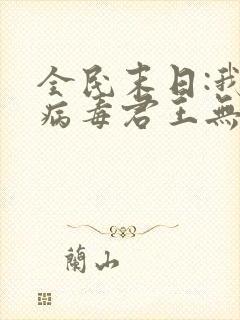 全民末日:我
病毒君主無
蘭山